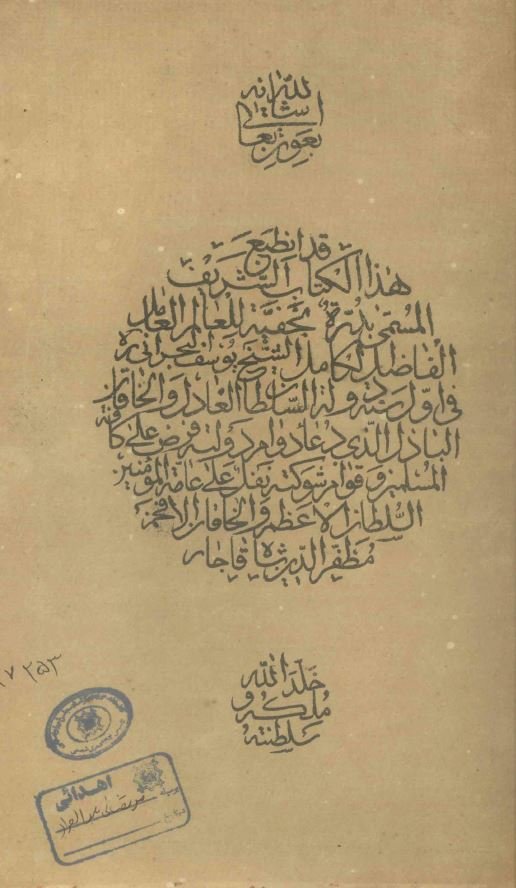 بعون الله تعالى شأنه
قد انطبع
هذا الكتاب الشريف
المسمى بدرة نجفية للعالم العامل
الفاضل الكامل الشيخ يوسف البحراني ره
في اول سنة دولة السلطان العادل والخاقان
الباذل الذي دعاء دوام دولته فرض على كافة
المسلمين وقوام شوكته نفل على عامة المؤمنين
السلطان الاعظم والخاقان الافخم
مظفر الدين شاه قاجار
خلد الله
ملكه و
سلطنته
٢٥٣
اهدائی